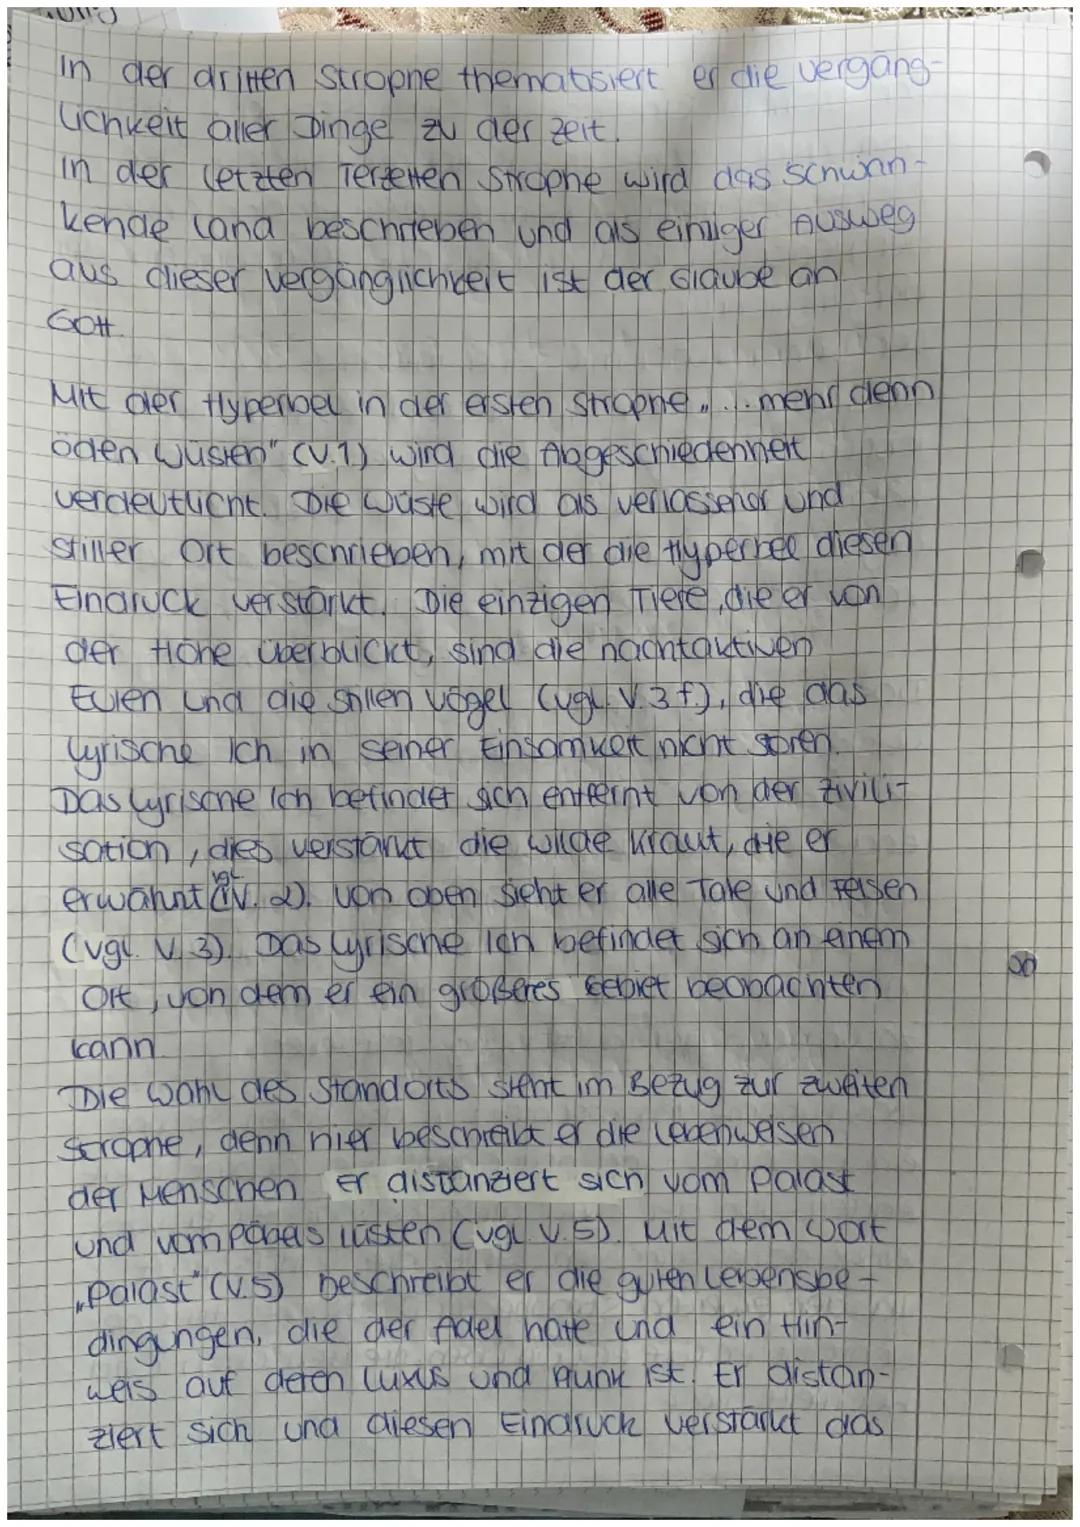 In der dritten Strophe thematisiert er die vergäng-
lichkeit aller Dinge zu der Zeit.
In der letzten Terzetten Strophe wird das schwin-
kende Land beschrieben und als einziger Ausweg
aus dieser Vergänglichkeit ist der Glaube an
Gott.
Mit der Hyperbel in der ersten Strophe „... mehr denn
öden Wüsten" (V.1) wird die Abgeschiedenheit
verdeutlicht. Die Wüste wird als verlassener und
stiller Ort beschrieben, mit der die Hyperbel diesen
Eindruck verstärkt. Die einzigen Tiere, die er von
der Höhe überblickt, sind die nachtaktiven
Eulen und die stillen Vögel (vgl. V. 3 f), die das
lyrische Ich in seiner Einsamkeit nicht stören.
Das lyrische Ich befindet sich entfernt von der Zivili-
sation, dies verstärkt die wilde Kraut, die er
erwähnt (vgl. V. 2). Von oben sieht er alle Tale und Felsen
(vgl. V. 3). Das lyrische Ich befindet sich an einem
Ort, von dem er ein größeres Gebiet beobachten
kann.
Die Wahl des Standorts steht im Bezug zur zweiten
Strophe, denn hier beschreibt er die Lebenweisen
der Menschen. Er distanziert sich vom Palast
und vom Pöbels lüsten (vgl. V. 5). Mit dem Wort
„Palast" (V.5) beschreibt er die guten Lebensbe-
dingungen, die der Adel hate und ein Hin-
weis auf deren Luxus und Prunk ist. Er distan-
ziert sich und diesen Eindruck verstärkt das